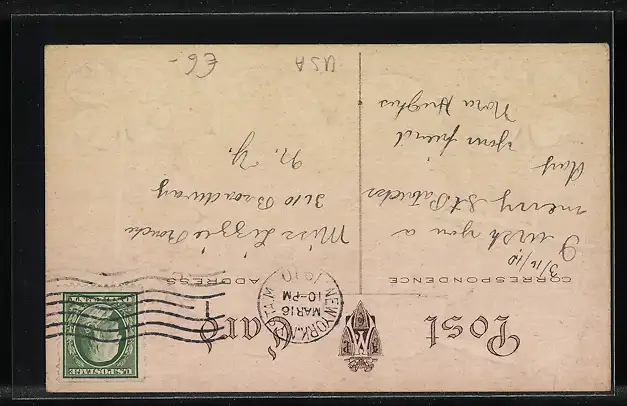 Post Card
CORRESPONDENCE
ADDRESS
U.S. POSTAGE
NEW YORK, N.Y. STA.
MAR 16
10-PM
1910
3/16/10
I wish you a
merry St Patricks
day
Your friend
Nora Hughes
Miss Lizzie
3610 Broadway
N. Y.
USA
£6-